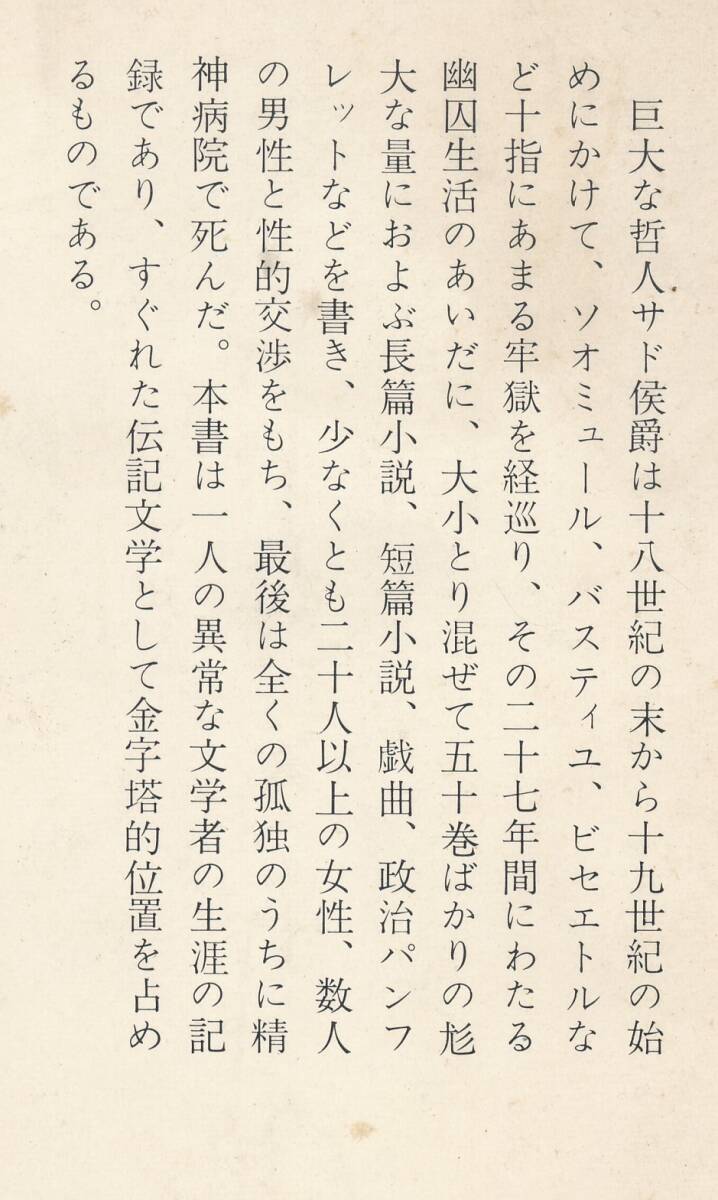 巨大な哲人サド侯爵は十八世紀の末から十九世紀の始
めにかけて、ソオミュール、バスティユ、ビセエトルな
ど十指にあまる牢獄を経巡り、その二十七年間にわたる
幽囚生活のあいだに、大小とり混ぜて五十巻ばかりの尨
大な量におよぶ長篇小説、短篇小説、戯曲、政治パンフ
レットなどを書き、少なくとも二十人以上の女性、数人
の男性と性的交渉をもち、最後は全くの孤独のうちに精
神病院で死んだ。本書は一人の異常な文学者の生涯の記
録であり、すぐれた伝記文学として金字塔的位置を占め
るものである。